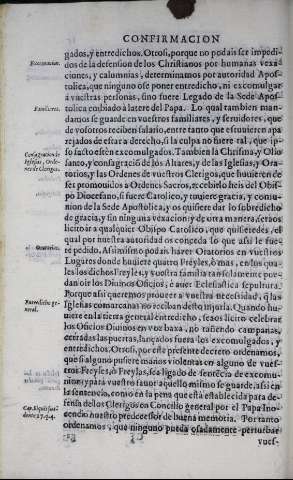 CONFIRMACION
gados, y entredichos. Otrosi, porque no podais ser impedi-
dos de la defension de los Christianos por humanas vexa-
ciones, y calumnias, determinamos por autoridad Apos-
tolica, que ninguno ose poner entredicho, ni excomulgar
à vuestras personas, sino fuere Legado de la Sede Apos-
tolica embiado à latere del Papa. Lo qual tambien man-
damos se guarde en vuestros familiares, y servidores, que
de vosotros reciben salario, entre tanto que estuvieren apa
rejados de estar a derecho, si la culpa no fuere tal, que ip-
so facto estèn excomulgados. Tambien la Chrisma, y Olio
santo, y consagraciō de los Altares, y de las Iglesias, y Ora-
torios, y las Ordenes de vuestros Clerigos, que huuieren de
ser promouidos a Ordenes Sacros, recebirlo heis del Obis-
po Diocesano, si fuere Catolico, y tuuiere gracia, y comu-
nion de la Sede Apostolica, y os quisiere dar lo sobredicho
de gracia, y sin ninguna vexacion; y de otra manera, seaos
licito ir a qualquier Obispo Catolico, que quisieredes, el
qual por nuestra autoridad os conceda lo que assi le fue-
re pedido. Assimismo podais hazer Oratorios en vuestros
Lugares donde huuiere quatro Freyles, ò mas, en los qua-
les los dichos Freyles, y vuestra familia tansolamente pue-
dan oir los Diuinos Oficios, è auer Eclesiastica sepultura.
Porque assi queremos proueer a vuestra necessidad, q̃ las
Iglesias comarcanas no reciban desto injuria. Quando hu-
uiere en la tierra general entredicho, seaos licito celebrar
los Oficios Diuinos en voz baxa, no tañendo campanas,
cerradas las puertas, lançados fuera los excomulgados, y
entredichos. Otrosi, por este presente decreto ordenamos,
que si alguno pusiere manos violentas en alguno de vues-
tros Freyles, ò Freylas, sea ligado de sentēcia de excomu-
nion; y para vuestro fauor aquello mismo se guarde, assi en
la sentencia, como en la pena que està establecida para de-
fensa de los Clerigos en Concilio general por el Papa Ino-
cencio nuestro predecessor de buena memoria. Por tanto
ordenamos, que ninguno pueda osadamente perturbar
vues-
Excomunion.
Familiares.
Consagracion de
Iglesias, Orde-
nes de Clerigos.
Oratorios.
Entredicho ge-
neral.
Cap. Si quis sua-
dente 17. q. 4.